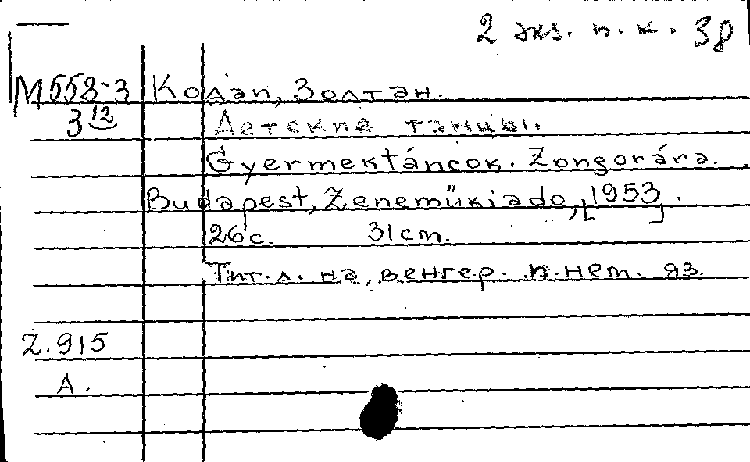 2 экз. п. к. 38
М558-3 Кодаи, Золтан.
3 12 Детские танцы.
Gyermektáncok. Zongorára.
Budapest, Zeneműkiado, [1953].
26с. 31cm.
Тит. л. на венгер. и нем. яз.
Z.915
А.